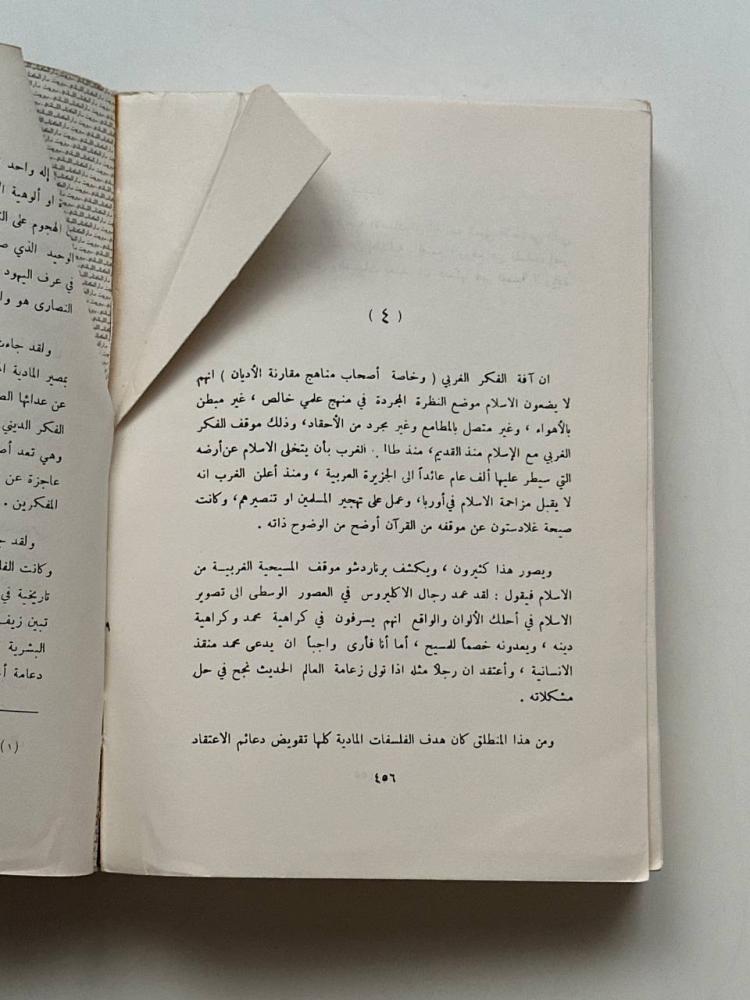 ( ٤ )
ان آفة الفكر الغربي ( وخاصة أصحاب مناهج مقارنة الأديان ) انهم
لا يضعون الاسلام موضع النظرة المجردة في منهج علمي خالص ، غير مبطن
بالأهواء ، وغير متصل بالمطامع وغير مجرد من الأحقاد، وذلك موقف الفكر
الغربي مع الإسلام منذ القديم، منذ الغرب بأن يتخلى الاسلام عن أرضه
التي سيطر عليها ألف عام عائداً الى الجزيرة العربية ، ومنذ أعلن الغرب انه
لا يقبل مزاحمة الاسلام في أوربا، وعمل على تهجير المسلمين او تنصيرهم، وكانت
صيحة غلادستون عن موقفه من القرآن أوضح من الوضوح ذاته .
ويصور هذا كثيرون ، ويكشف برناردشو موقف المسيحية الغربية من
الاسلام فيقول : لقد عمد رجال الاكليروس في العصور الوسطى الى تصوير
الاسلام في أحلك الألوان والواقع انهم يسرفون في كراهية محمد وكراهية
دينه ، ويعدونه خصماً للمسيح ، أما أنا فأرى واجباً ان يدعى محمد منقذ
الانسانية ، وأعتقد ان رجلاً مثله اذا تولى زعامة العالم الحديث نجح في حل
مشكلاته .
ومن هذا المنطلق كان هدف الفلسفات المادية كلها تقويض دعائم الاعتقاد
٤٥٦
إله واحد
او ألوهية
الهجوم على
الوحيد الذي
في عرف اليهود
النصارى هو
ولقد جاءت
بمصير المادية
عن عدائها
الفكر الديني
وهي تعد
عاجزة عن
المفكرين .
ولقد
وكانت
تاريخية في
تبين زيف
البشرية
دعامة
(١)